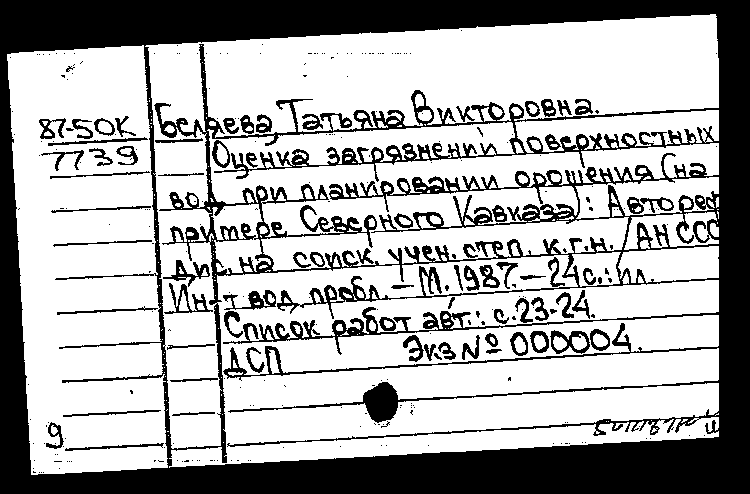 87-50К Беляева, Татьяна Викторовна.
7739 Оценка загрязнений поверхностных
вод при планировании орошения (на
примере Северного Кавказа): Автореф
дис. на соиск. учен. степ. к.г.н. / АН ССС
Ин-т вод. пробл. – М. 1987. – 24с.: ил.
Список работ авт.: с.23-24.
ДСП Экз № 000004.
9